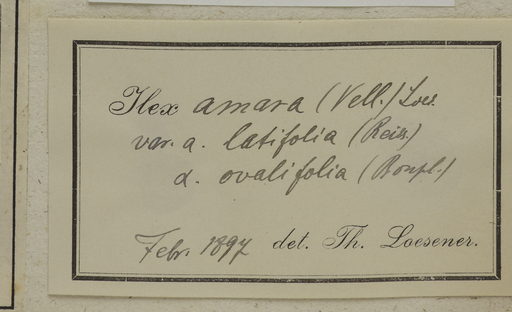 Ilex amara (Vell.) Loes.
var. a. latifolia (Reiss.)
α. ovalifolia (Bonpl.)
Febr. 1897 det. Th. Loesener.